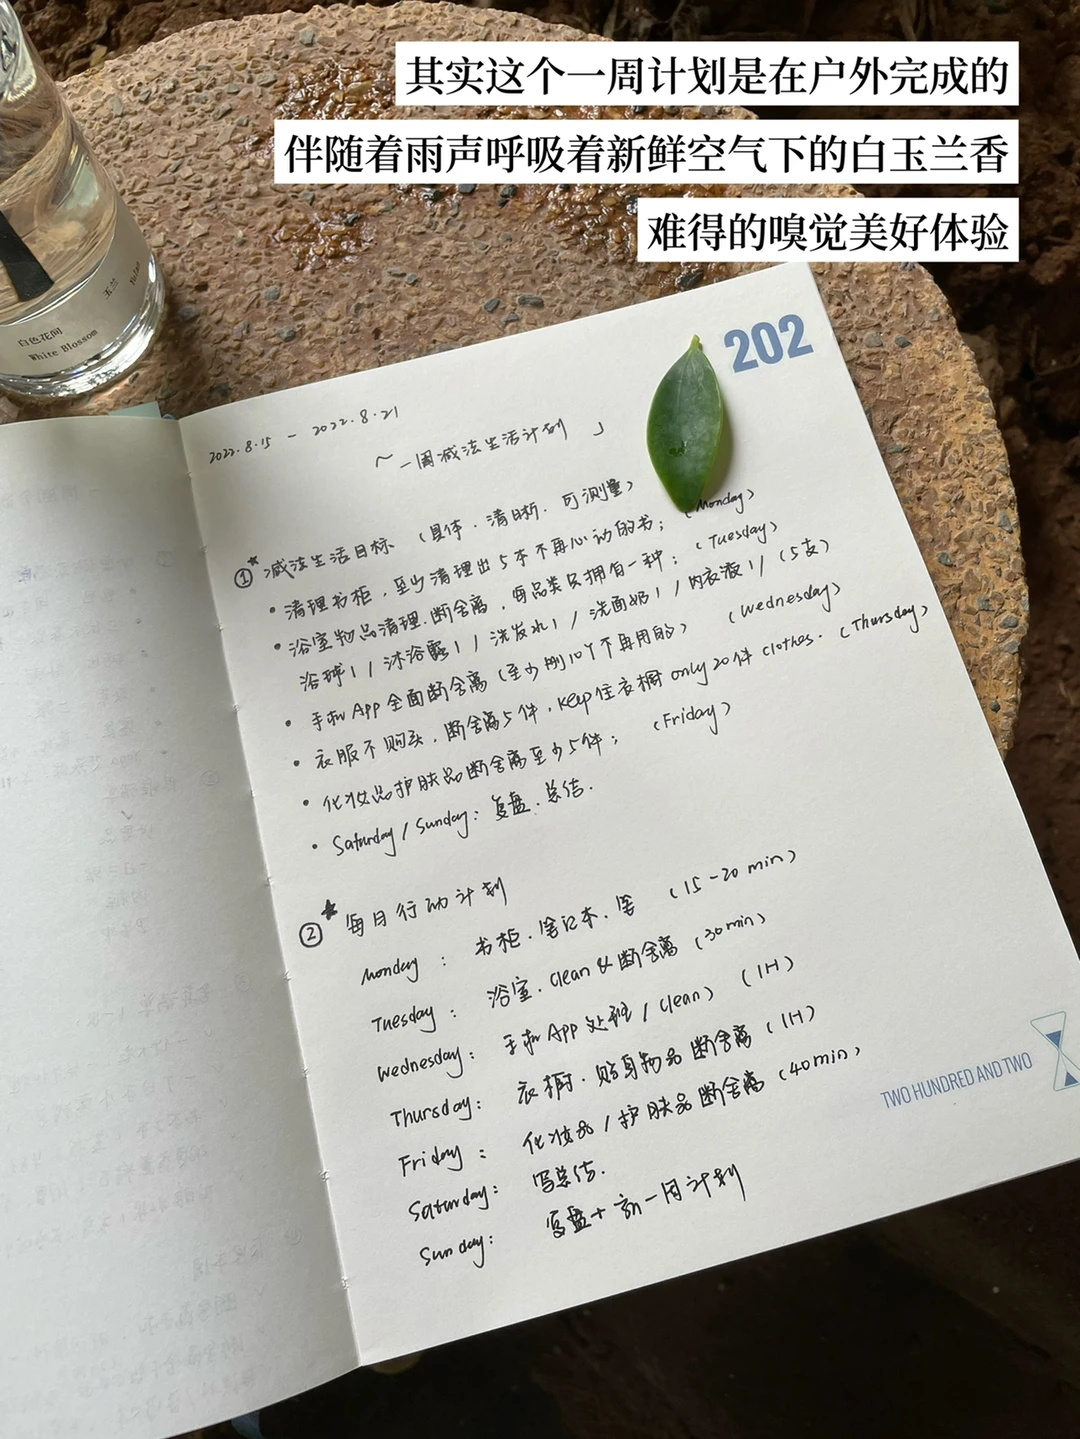 其实这个一周计划是在户外完成的
伴随着雨声呼吸着新鲜空气下的白玉兰香
难得的嗅觉美好体验
白色花间
White Blossom
玉兰
Yulan
202
2022.8.15 - 2022.8.21
一周减法生活计划
① 减法生活目标 (具体.清晰.可测量)
• 清理书柜,至少清理出5本不再心动的书; (Monday)
• 浴室物品清理.断舍离,每品类只拥有一种; (Tuesday)
浴球1/沐浴露1/洗发水1/洗面奶1/内衣液1/(5支)
• 手机App全面断舍离(至少删10个不再用的) (Wednesday)
• 衣服不购买.断舍离5件.keep住衣橱only 20件clothes. (Thursday)
• 化妆品护肤品断舍离至少5件; (Friday)
• Saturday/Sunday: 复盘.总结.
② 每日行动计划
Monday: 书柜.笔记本.舍 (15-20 min)
Tuesday: 浴室.clean & 断舍离 (30min)
Wednesday: 手机App处理/clean) (1H)
Thursday: 衣橱.贴身物品断舍离 (1H)
Friday: 化妆品/护肤品断舍离 (40min)
Saturday: 写总结.
Sunday: 复盘+新一周计划
TWO HUNDRED AND TWO